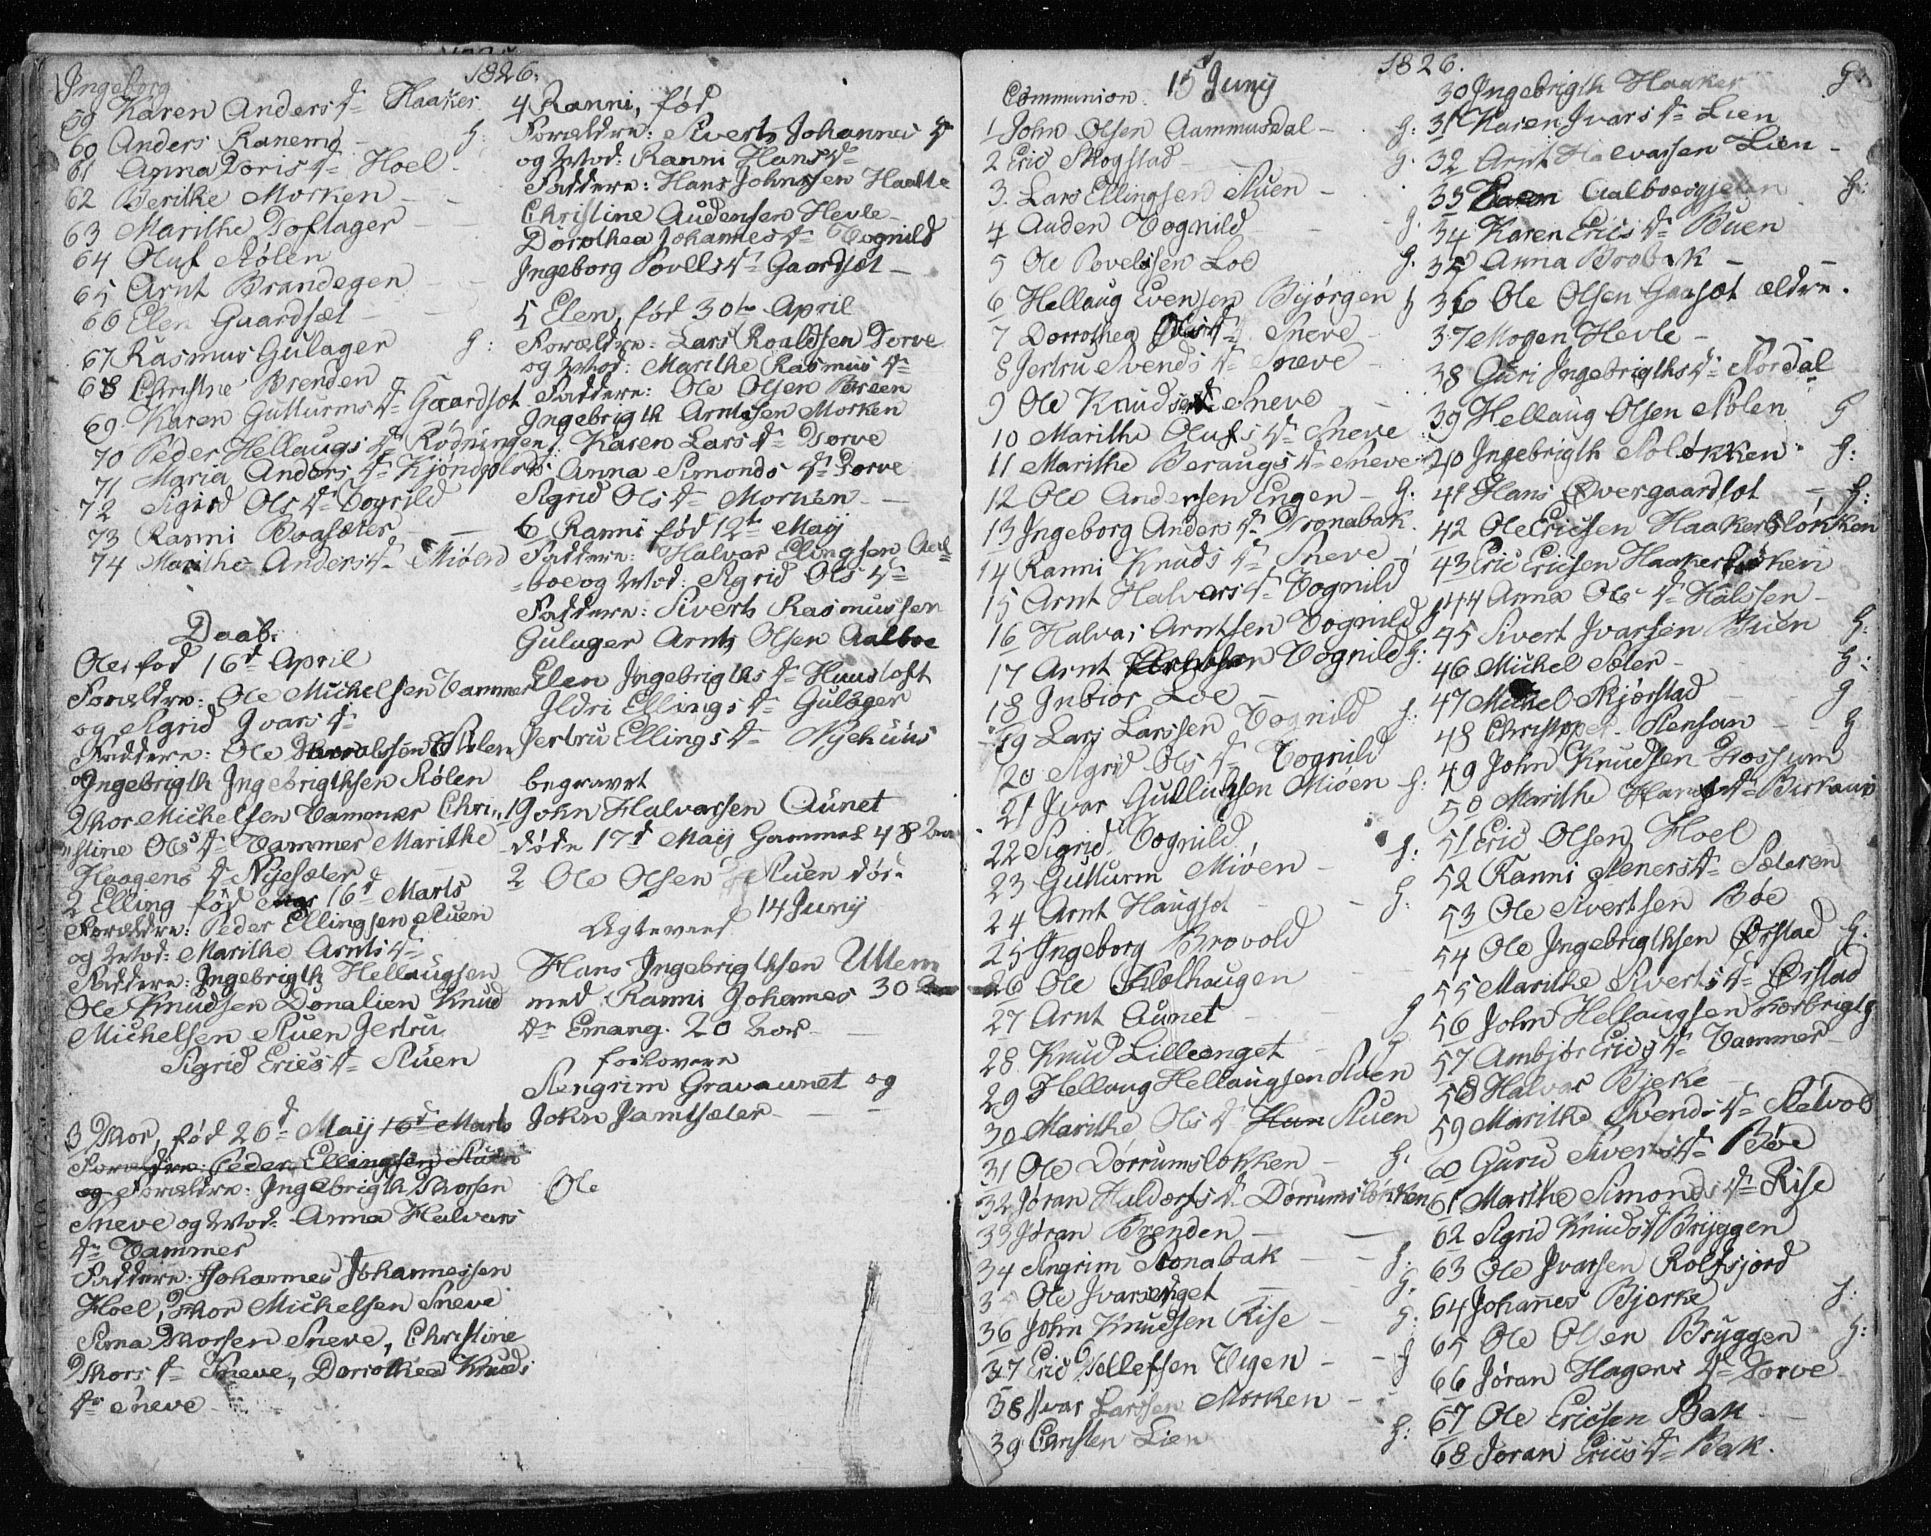 1826.
Ingeborg
59 Karen Anders Dr Haaker
60 Anders Ranemo - G:
61 Anna Joris Dr Hoel
62 Berithe Morken - -
63 Marithe Toftager - -
64 Oluf Stølen
65 Arnt Brandegen - -
66 Elen Gaardsæt -
67 Rasmus Gulager G:
68 Christne Brenden -
69 Karen Gutturms Dr Gaardsæt
70 Peder Hellaugs Dr Rødningen
71 Maria Anders Dr
72 Sigrd Ols Dr Vognild
73 Ranni Boasæter -
74 Marithe Anders Dr Miøen
Daab.
Ole, fød 16d April
Forældre: Ole Michelsen Vammer
og Sigrid Ivars Dr
Faddere: Ole Stølen
Ingebrigth Ingebrigthsen Stølen
Thor Michelsen Vammer Chri-
stine Ols Dr Vammer Marithe
Haagens Dr Nyesæter
2 Elling fød 16d Marts
Forældre: Peder Ellingsen Stuen
og Mod: Marithe Arnts Dr
Faddere: Ingebrigth Hellaugsen
Ole Knudsen Donalien Knud
Michelsen Stuen Jertru
Sigrid Erics Dr Stuen
3 Thor, fød 26d Maij 16d Marts
Forældre: Peder Ellingsen Stuen
og Forældre: Ingebrigth Thorsen
Sneve og Mod: Anna Halvars
Dr Vammer
Faddere: Johannes Johannessen
Hoel, Thor Michelsen Sneve
Thorsen Sneve, Christine
Thors Dr Sneve, Dorothea Knuds
Dr Sneve
4 Ranni, fød
Forældre: Siverts Johannes Dr
og Mod: Ranni Hans Dr
Faddere: Hans Johnsen
Christine Audensen Hevle -
Dorothea Johannes Dr Vognild
Ingeborg Povels Dr Gaardsæt -
5 Elen, fød 30te April
Forældre: Lars Roaldsen Torve
og Mod: Marithe Rasmus Dr
Faddere: Ole Olsen Breen
Ingebrigth Arntsen Morken
Karen Lars Dr Torve
Anna Simonds Dr Torve
Sigrid Ols Dr Morken -
6 Ranni fød 12te Maij
Faddere: Halvar Elingsen Aal-
boe og Mod: Sigrid Ols Dr
Faddere: Siverts Rasmussen
Gulager Arnts Olsen Aalboe
Elen Ingebrigths Dr Huusloft
Ildri Ellings Dr Gulager
Jertru Ellings Dr Nyehuus
begravet
1 John Halvarsen Aunet
døde 17d Maij Gammel 48
2 Ole Olsen Stuen
14 Junij
Ægtevied
Hans Ingebrigthsen
med Ranni Johannes 30
Dr Emang. 20 Aar -
forlovere
Stengrim Gravaunet og
John Jamtsæter -
Ole
1826.
Communion 15 Junij
1 John Olsen Aammusdal - G:
2 Eric Skogstad - G.
3. Lars Ellingsen Stuen -
4 Auden Vognild - G
5 Ole Povelssen Loe G.
6 Hellaug Evensen Bjørgen G
7 Dorrothea Ols Dr Sneve -
8 Jertru Svends Dr Sneve -
9 Ole Knudsen Sneve -
10 Marithe Olufs Dr Sneve
11 Marithe Beraugs Dr Sneve
12 Ole Andersen Engen - G.
13 Ingeborg Anders Dr Tronabak.
14 Ranni Knuds Dr Sneve -
15 Arnt Halvars Dr Vognild
16 Halvar Arntsen Vognild G
17 Arnt Vognild G:
18 Inbiør Loe -
19 Lars Larssen Vognild G:
20 Sigrid Ols Dr Vognild
21 Ivar Gullichsen Mioen G:
22 Sigrid Vognild
23 Gutturm Miøen - G:
24 Arnt Haugset - G:
25 Ingeborg Brovold
26 Ole Kolhaugen
27 Arnt Aunet - G
28 Knud Lilleenget - G.
29 Hellaug Hellaugsen Stuen
30 Marithe Ols Dr Stuen
31 Ole Dorrumsløkken - G.
32 Jøran Haldorfs Dr Dorrumsløkken
33 Jøran Brenden - -
34 Stengrim Stonabak - G:
35 Ole Ivarsenget - G.
36 John Knudsen Rise - G:
37 Eric Tellefsen Vigen - G
38 Ivar Larssen Morken -
39 Christen Lien G:
30 Ingebrigth Haaker G
31 Karen Ivars Dr Lien
32 Arnt Halvarsen Lien -
33 Aalboesvjelen G:
34 Karen Erics Dr Buen
35 Anna Brobak - -
36 Ole Olsen Gaasæt ældre.
37 Mogen Hevle -
38 Guri Ingebrigths Dr Nordal
39 Hellaug Olsen Stolen G
40 Ingebrigth Soløkken G:
41 Hans Øvergaardsæt - G:
42 Ole Ericsen Haakersløkken
43 Eric Ericsen Haakersløkken
44 Anna Ols Dr Halssen -
45 Sivert Ivarsen Buen G:
46 Michel Sæter - G:
47 Mikkel Skjørstad - G
48 Christopher Stensan - G
49 John Knudsen Fossum
50 Marithe Hans Dr
51 Eric Olsen Hoel
52 Ranni Steners Dr Sæteren
53 Ole Sivertsen Bøe
54 Ole Ingebrigthsen Ørstad G.
55 Marithe Siverts Dr Ørstad
56 John Hellaugsen
57 Ambjør Erics Dr Vammer
58 Halvar Bjerke
59 Marithe Svends Dr
60 Guru Siverts Dr Bøe
61 Marithe Simonds Dr Rise
62 Sigrid Knuds Dr Bryggen
63 Ole Ivarsen Rolfsjord
64 Johannes Bjerke G:
65 Ole Olsen Bryggen G:
66 Jøran Hagens Dr Torve
67 Ole Ericsen Bak -
68 Jøran Erics Dr Bak.